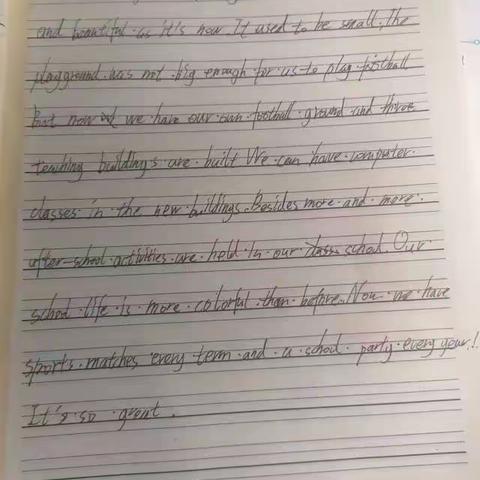 and beautiful as it's now. It used to be small. The
playground was not big enough for us to play football
But now we have our own football ground and three
teaching buildings are built We can have computer
classes in the new buildings. Besides more and more
after-school activities are held in our school. Our
school life is more colorful than before. Now we have
sports matches every term and a school party every year!
It's so great.